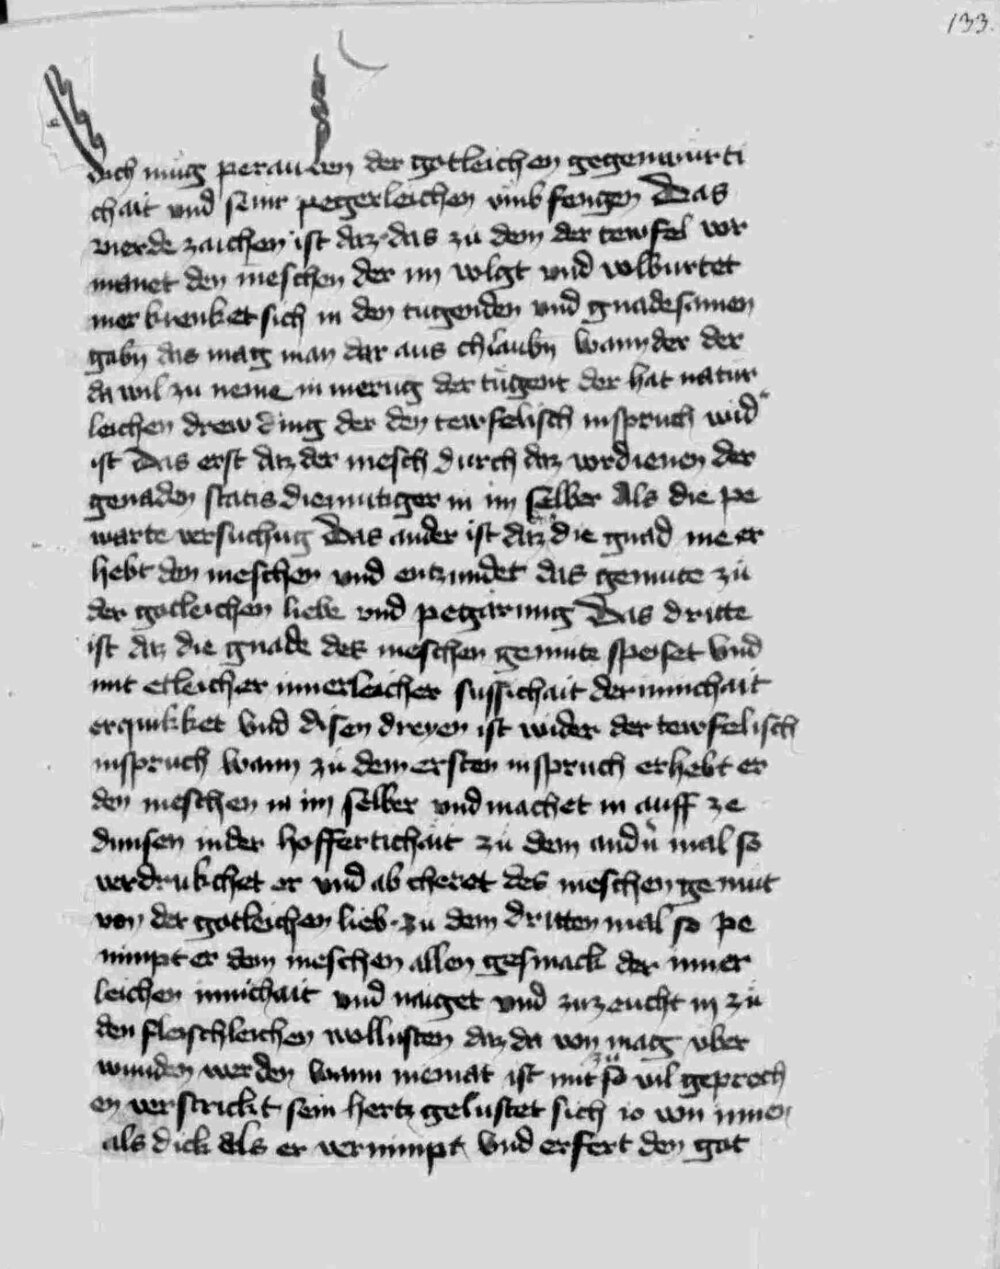 133.
dich mug perauben der gotleichen gegenwurti
chait vnd seinr pegerleichen vmb fengen Das
vierde zaichen ist daz das zu dem der tewfel vor
manet den meschen der im volgt vnd volburtet
mer krenket sich in den tugenden vnd gnadesamen
gabn das mag man dar aus chlaubn wann der der
da wil zu neme in merug der tugent der hat natur
leichen drew ding der den tewfelisch inspruch wid
ist Das erst daz der mesch durch daz vordienen der
genaden statis diemutiger in im selber Als die pe
warte versuchug Das ander ist daz die gnad me er
hebt den meschen vnd entzundet das gemute zu
der gotleichen liebe vnd pegarung Das dritte
ist daz die gnade des meschen gemute speiset vnd
mit etleicher innerleicher sussichait der innichait
erquikket vnd disen dreyen ist wider der tewfelisch
inspruch wann zu dem ersten inspruch erhebt er
den meschen in im selber vnd machet in auff ze
dunsen in der hoffertichait zu dem andn mal so
verdrukchet er vnd ab cheret des meschen gemut
von der gotleichen lieb zu dem dritten mal so pe
nimpt er dem meschen allen gesmack der inner
leichen innichait vnd naiget vnd zuzeucht in zu
den fleischleichen wollusten daz da von mag vber
wunden werden wann niemat ist mit so vil geproch
en verstrickt sein hertz gelustet sich io von innen
als dick als er vernimpt vnd erfert den got